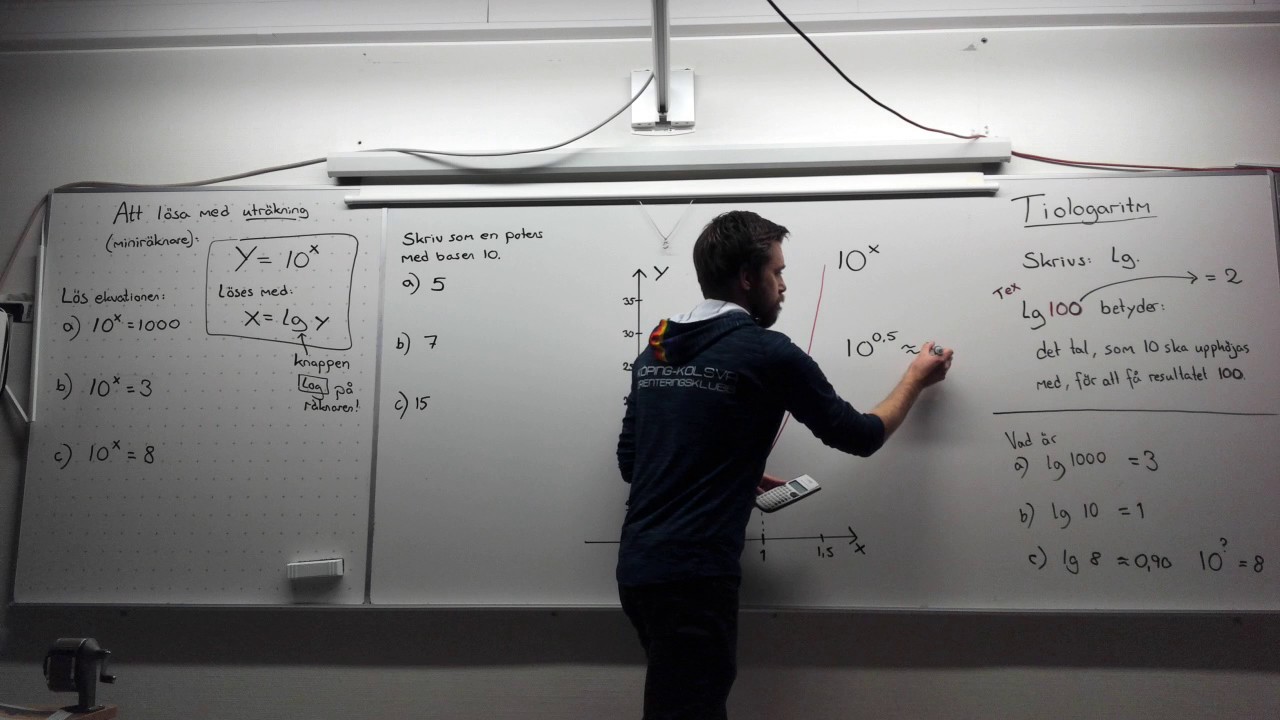 Att lösa med uträkning
(miniräknare):
Y = 10^x
löses med:
x = lg y
knappen
log på
räknaren!
Lös ekvationen:
a) 10^x = 1000
b) 10^x = 3
c) 10^x = 8
Skriv som en potens
med basen 10.
a) 5
b) 7
c) 15
Y
35
30
1
1,5
x
KÖPING-KOLSVA
ORIENTERINGSKLUBB
10^x
10^0,5 ≈
Tiologaritm
Skrivs: lg.
Tex
lg100 betyder: = 2
det tal, som 10 ska upphöjas
med, för att få resultatet 100.
Vad är
a) lg 1000 = 3
b) lg 10 = 1
c) lg 8 ≈ 0,90 10^? = 8